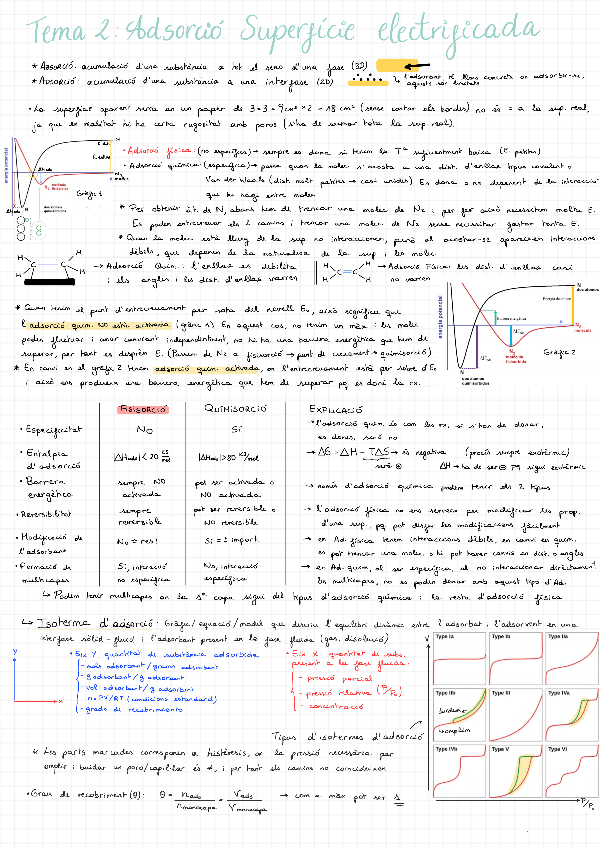 Tema 2: Adsorció. Superfície electrificada
* ABSORCIÓ: acumulació d'una substància a tot el seno d'una fase (3D)
* ADSORCIÓ: acumulació d'una substància a una interfase (2D)
↳ L'adsorbat té llocs concrets on adsorbir-se, aquests són limitats
• La superfície aparent seria en un paper de 3·3 = 9cm² × 2 = 18 cm² (sense contar els bordes) no és = a la sup. real,
ja que en realitat hi ha certa rugositat amb poros (s'ha de sumar tota la sup. real).
energia potencial
Gràfic 1
• Adsorció física: (no específica) → sempre es dona si tenim la Tª suficientment baixa (E petita)
• Adsorció química: (específica) → passa quan la molec s'acosta a una dist. d'enllaç tipus covalent o
Van der Waals (dist. molt petites → casi unides) Es dona o no depenent de la interacció
que hi hagi entre molec
* Per obtenir at. de N, abans hem de trencar una molec de N₂ i per fer això necessitem molta E.
Es poden entrecreuar els 2 camins i trencar una molec. de N₂ sense necessitar gastar tanta E.
* Quan la molec. està lluny de la sup no interaccionen, però al acostar-se apareixen interaccions
dèbils, que depenen de la naturalesa de la sup i les molec.
H C = C H
→ Adsorció Quím.: l'enllaç es debilita
i els angles i les dist. d'enllaç varien
H C = C H
→ Adsorció Física: les dist. d'enllaç casi
no varien
* Quan tenim el punt d'entrecreuament per sota del nivell E₀, això significa que
l'adsorció quím. NO està activada (gràfic 1) En aquest cas, no tenim un màx i les molec.
poden fluctuar i anar canviant independentment, no hi ha una barrera energètica que hem de
superar, per tant es desprèn E. (Passem de N₂ a fisisorció → punt de creuament → quimisorció)
* En canvi en el gràfic 2 tenim adsorció quím. activada, on l'entrecreuament està per sobre d'E₀
i això ens produeix una barrera energètica que hem de superar pq es doni la rx.
energia potencial
Energia de enllace
Gràfic 2
FISISORCIÓ QUIMISORCIÓ EXPLICACIÓ
• Especificitat No Sí → l'adsorció quím. és com les rx, si s'han de donar,
es dones, sinó no
• Entalpia d'adsorció |ΔHads| < 20 kJ/mol |ΔHads| > 80 kJ/mol → ΔG = ΔH - TΔS → és negativa (procés sempre exotèrmic)
ΔH → ha de ser
• Barrera energètica sempre NO activada pot ser activada o NO activada → només d'adsorció química podem tenir els 2 tipus
• Reversibilitat sempre reversible pot ser reversible o NO reversible → l'adsorció física no ens serveix per modificar les prop.
d'una sup., pq pot desfer les modificacions fàcilment
• Modificació de l'adsorbant No = res! Sí = ! import. → en Ad. física tenim interaccions dèbils, en canvi en quím.
es pot trencar una molec. o hi pot haver canvis en dist. o angles
• Formació de multicapes Sí, interacció no específica No, interacció específica → en Ad. quím, al ser específica, al no interaccionar directament
les multicapes, no es poden donar amb aquest tipus d'Ad.
↳ Podem tenir multicapes on la 1ª capa sigui del tipus d'adsorció química i la resta d'adsorció física
↳ Isoterma d'adsorció: Gràfic/equació/model que descriu l'equilibri dinàmic entre l'adsorbat i l'adsorvent en una
interfase sòlid-fluid i l'adsorbat present en la fase fluida (gas, dissolució)
y
x
• Eix Y quantitat de substància adsorbida
- mols adsorbant/grams adsorbent
- g adsorbant/g adsorbent
- vol adsorbant/g adsorbent
- n = PV/RT (condicions estàndard)
- grado de recubrimiento
• Eix X quantitat de subs. present a la fase fluida:
- pressió parcial
- pressió relativa (P/P₀)
- concentració
Tipus d'isotermes d'adsorció
* Les parts marcades corresponen a histèresis, on la pressió necessària per
omplir i buidar un poro/capil·lar és ≠, i per tant els camins no coincideixen
• Grau de recobriment (θ): θ = n ads / n monocapa = V ads / V monocapa → com a màx pot ser 1
V
Type Ia
Type Ib
Type IIa
Type IIb
Type III
Type IVa
Type IVb
Type V
Type VI
P/P₀